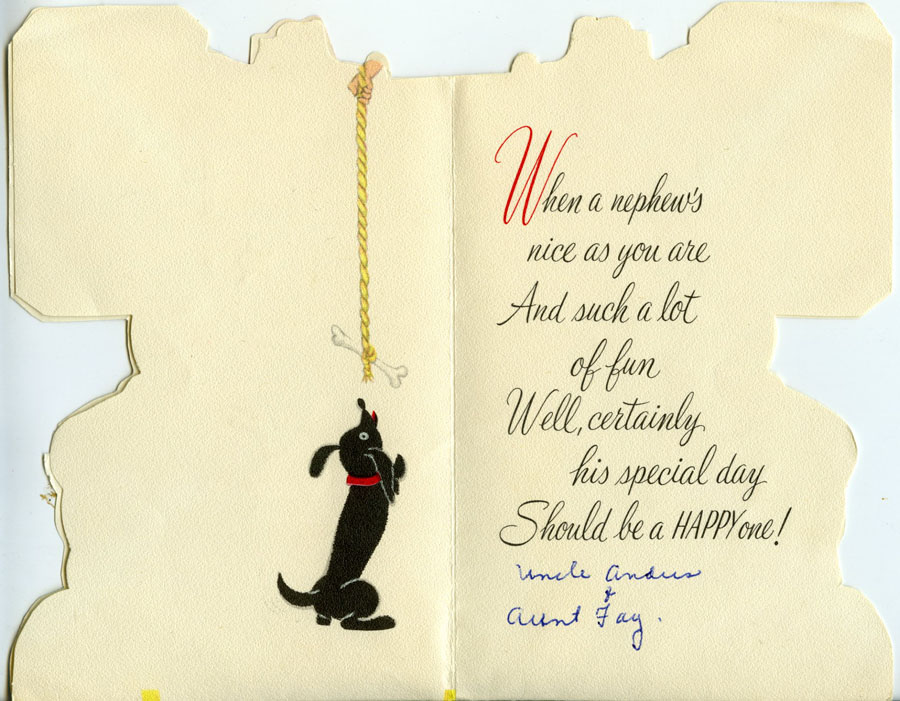 When a nephew's
nice as you are
And such a lot
of fun
Well, certainly
his special day
Should be a HAPPY one!
Uncle Andus
&
Aunt Fay.